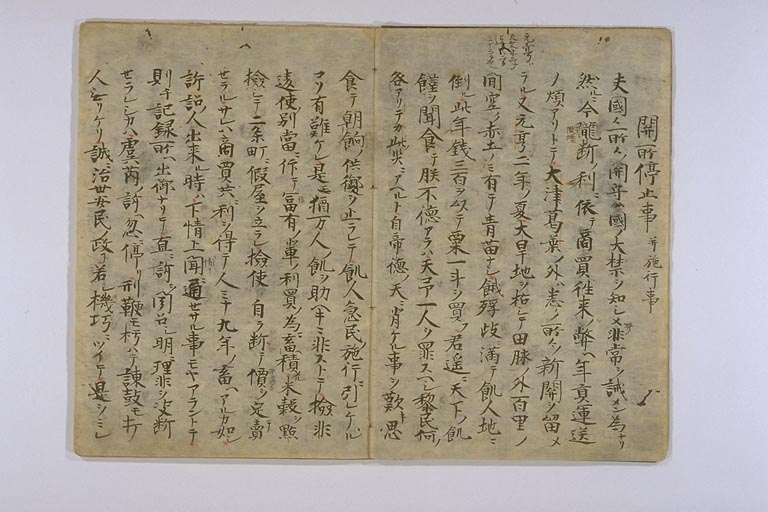 開所停止事 并施行事
夫國々所々ノ開所ハ國ノ大禁ヲ知シメ非常ヲ誡メン為ナリ
然ルニ今壟断ノ利ニ依テ商買往来ノ弊ヘ年貢運送
ノ煩アリトテ大津葛葉ノ外ハ悉ク所々ノ新開ヲ留メ
ラル又元亨二年ノ夏大旱地ヲ枯シテ田服ノ外百里ノ
間空ク赤土ノミ有テ青苗ナシ餓殍岐ニ満テ飢人地ニ
倒ル此年銭三百ヲ以テ粟一斗ヲ買フ君遥ニ天下ノ飢
饉ヲ聞食テ朕不徳アラハ天予一人ヲ罪スヘシ黎民何ノ
咎アリテカ此災ニアヘルト自帝徳ノ天ニ背ケル事ヲ歎思
食テ朝餉ノ供御ヲ止ラレテ飢人急民ノ施行ニ引レケル
コソ有難ケレ是モ猶万人ノ飢ヲ助ヘキニ非ストテ檢非
違使別當ニ仰テ富有ノ輩ノ利買ノ為ニ畜積米穀ヲ點
檢シテ二条町ニ假屋ヲ立ラレ檢使自ラ断テ價ヲ定テ賣
セラルサレハ商買共ニ利ヲ得テ人ミナ九年ノ畜ヘアルカ如シ
訴訟人出来ル時ハ下情上ニ聞ニ通セサル事モヤアラントテ
則チ記録所ヘ出御ナリテ直ニ訴ヲ聞召シ明メ理非ヲ决断
セラレシカハ虞芮ノ訴ヘ忽ニ停リ刑鞭モ朽ハテ諫鼓モ打
人ナカリケリ誠ニ治世安民ノ政リ若シ機巧ニツイテ是ヲミレ